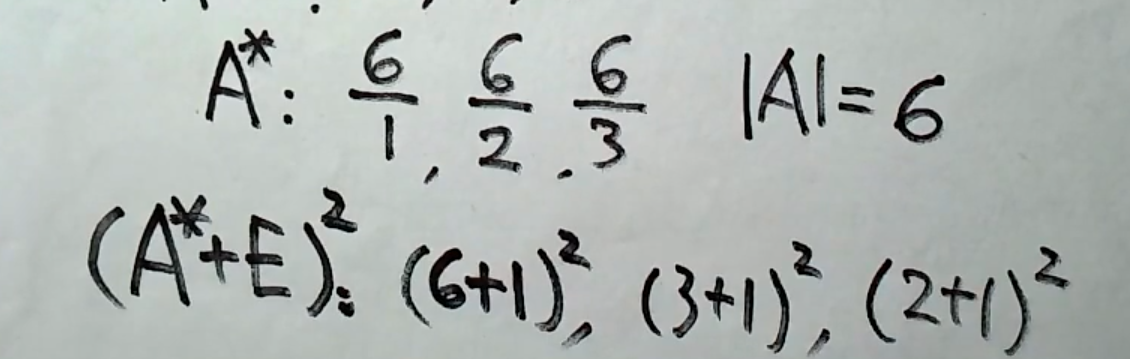 A*: 6/1, 6/2, 6/3 |A|=6
(A*+E)²: (6+1)², (3+1)², (2+1)²